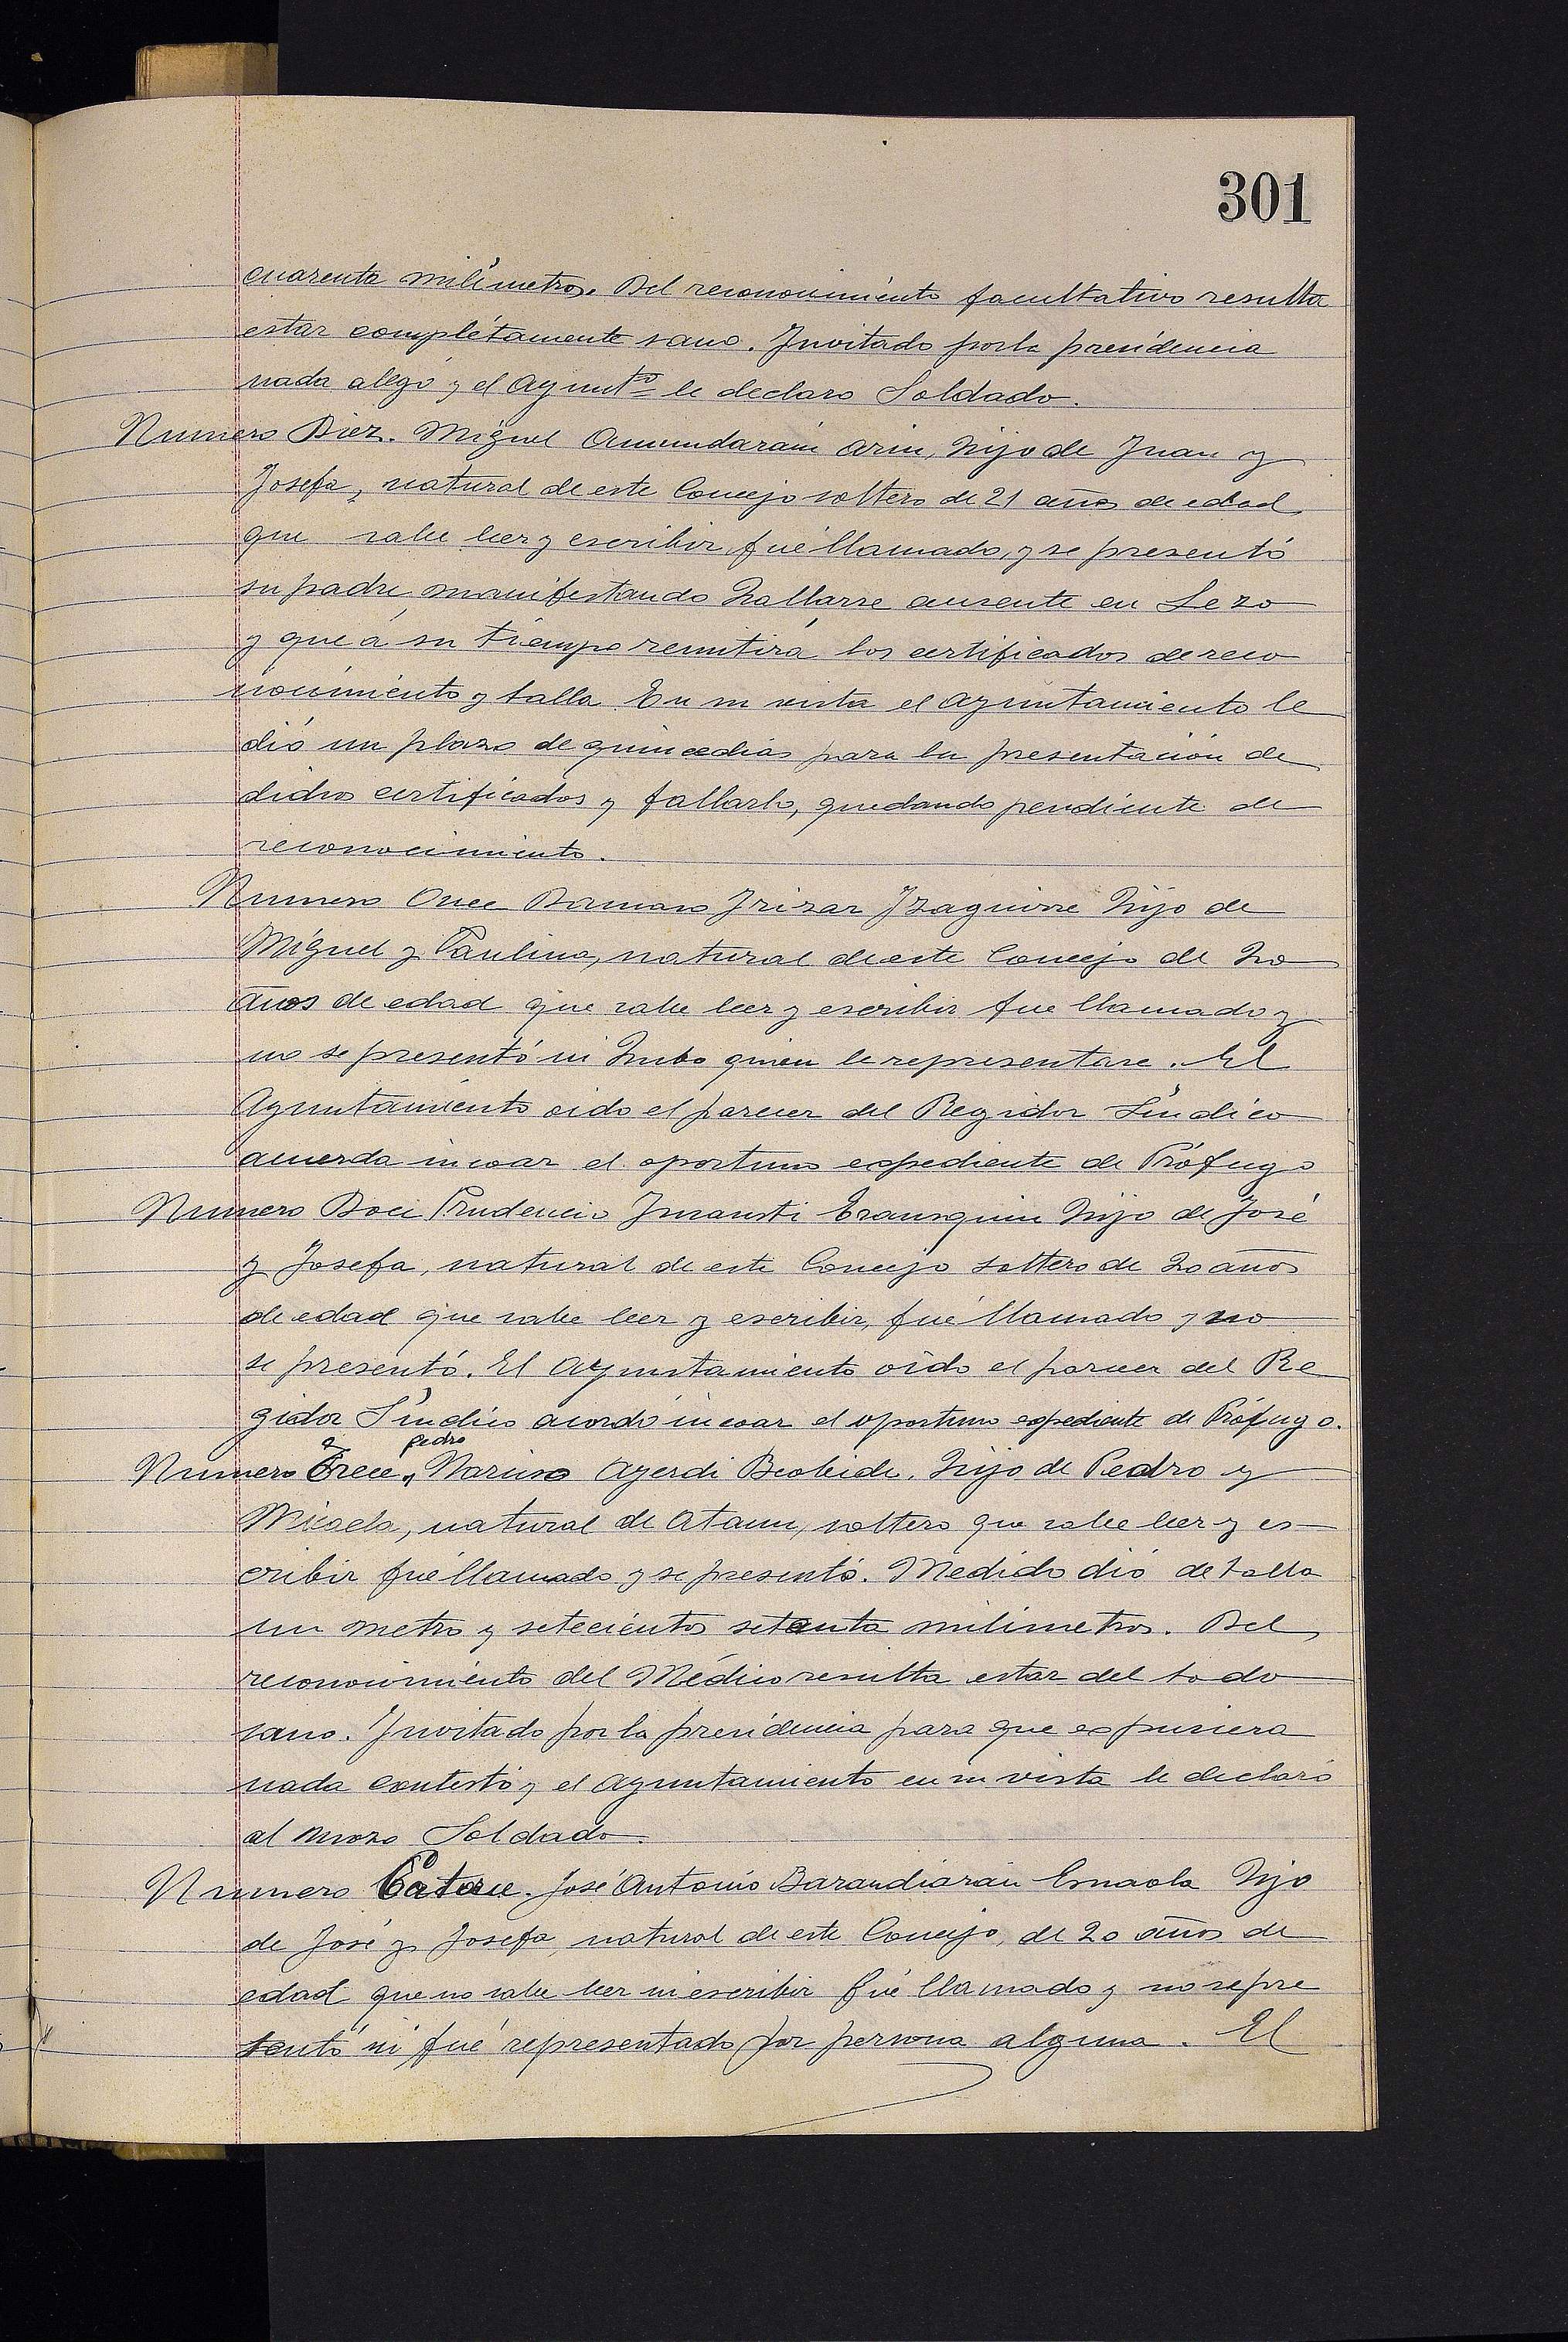 301
cuarenta milímetros. Del reconocimiento facultativo resulta
estar complétamente sano. Invitado porla presidencia
nada alegó y el Ayuntº le declaro Soldado.
Numero Diez. Miguel Amundaraín Arin, hijo de Juan y
Josefa, natural de este Concejo soltero de 21 años de edad
que sabe leer y escribir, fué llamado, y se presentó
su padre manifestando hallarse ausente en Lezo
y que á su tiempo remitirá los certificados de reco
nocimiento y talla En su vista el Ayuntamiento le
dió un plazo de quince dias para la presentación de
dichos certificados y fallarlo, quedando pendiente de
reconocimiento.
Numero Once Damaso Irizar Izaguirre hijo de
Miguel y Paulina, natural de este Concejo de 20
años de edad que sabe leer y escribir fue llamado y
no se presentó ni hubo quien le representase. El
Ayuntamiento oido el parecer del Regidor Síndico
acuerda incoar el oportuno expediente de Prófugo
Numero Doce Prudencio Imausti Erausquin hijo de José
y Josefa, natural de este Concejo soltero de 20 años
de edad que sabe leer y escribir, fué llamado y no
se presentó. El Ayuntamiento oído el parecer del Re
gidor Síndico acordó incoar el oportuno expediente de Prófugo.
Pedro
Numero Trece, Narciso Ayerdi Beobide, hijo de Pedro y
Micaela, natural de Ataun, soltero que sabe leer y es-
cribir fué llamado y se presentó. Medido dió de talla
un metro y setecientos setenta milímetros. Del
reconocimiento del Médico resulta estar del todo
sano. Invitado por la presidencia para que expusiera
nada contestó y el Ayuntamiento en su vista le declaró
al mozo Soldado.
Numero Catorce. José Antonio Barandiarán Ernaola hijo
de José y Josefa, natural de este Concejo, de 20 años de
edad que no sabe leer ni escribir fué llamado y no se pre
sentó ni fué representado por persona alguna. El